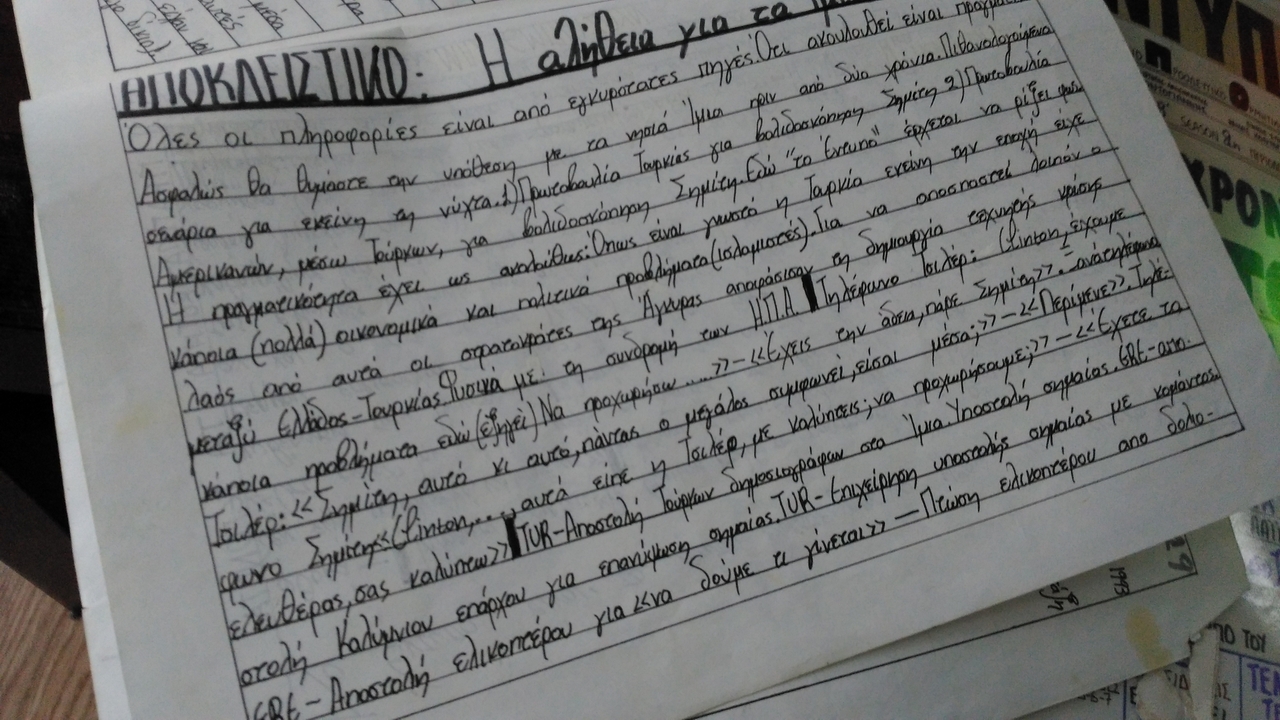 ΑΠΟΚΛΕΙΣΤΙΚΟ: Η αλήθεια για τα
Όλες οι πληροφορίες είναι από εγκυρότατες πηγές. Ότι ακουλουθεί είναι
Ασφαλώς θα θυμάστε την υπόθεση με τα νησιά Ίμια πριν από δύο χρόνια. Πιθανολογούμενα
σενάρια για εκείνη τη νύχτα. 1) Πρωτοβουλία Τουρκίας για βολιδοσκόπηση Σημίτη 2) Πρωτοβουλία
Αμερικανών, μέσω Τούρκων, για βολιδοσκόπηση Σημίτη. Εδώ "το Έντυπο" έρχεται να ρίξει φως.
Η πραγματικότητα έχει ως ακολούθως: Όπως είναι γνωστό η Τουρκία εκείνη την εποχή είχε
κάποια (πολλά) οικονομικά και πολιτικά προβλήματα (ισλαμιστές). Για να αποσπαστεί λοιπόν ο
λαός από αυτά οι στρατοκράτες της Άγκυρας αποφάσισαν τη δημιουργία τεχνητής κρίσης
μεταξύ Ελλάδος-Τουρκίας. Φυσικά με τη συνδρομή των ΗΠΑ. Τηλέφωνο Τσιλέρ: Clinton, έχουμε
κάποια προβλήματα εδώ (εξηγεί) Να προχωρήσω.....>>-<<Έχεις την άδεια, πάρε Σημίτη>>.
Τσιλέρ: <<Σημίτη, αυτό κι αυτό, πάντως ο μεγάλος συμφωνεί, είσαι μέσα;>>-<<Περίμενε>>. Τηλέ-
φωνο Σημίτης<<Clinton,...., αυτά είπε η Τσιλέρ, με καλύπτεις; να προχωρήσουμε;>>-<<Έχετε το
ελευθέρας, σας καλύπτω>> TUR-Αποστολή Τούρκων δημοσιογράφων στα Ίμια. Υποστολή σημαίας. GRE-απο-
στολή Καλύμνιου επάρχου για επανύψωση σημαίας. TUR-Επιχείρηση υποστολής σημαίας με κομάντος.
GRE-Αποστολή ελικοπτέρου για <<να δούμε τι γίνεται>> — Πτώση ελικοπτέρου απο δολιο-
SEASON
1993
ΠΟ ΤΟΥ